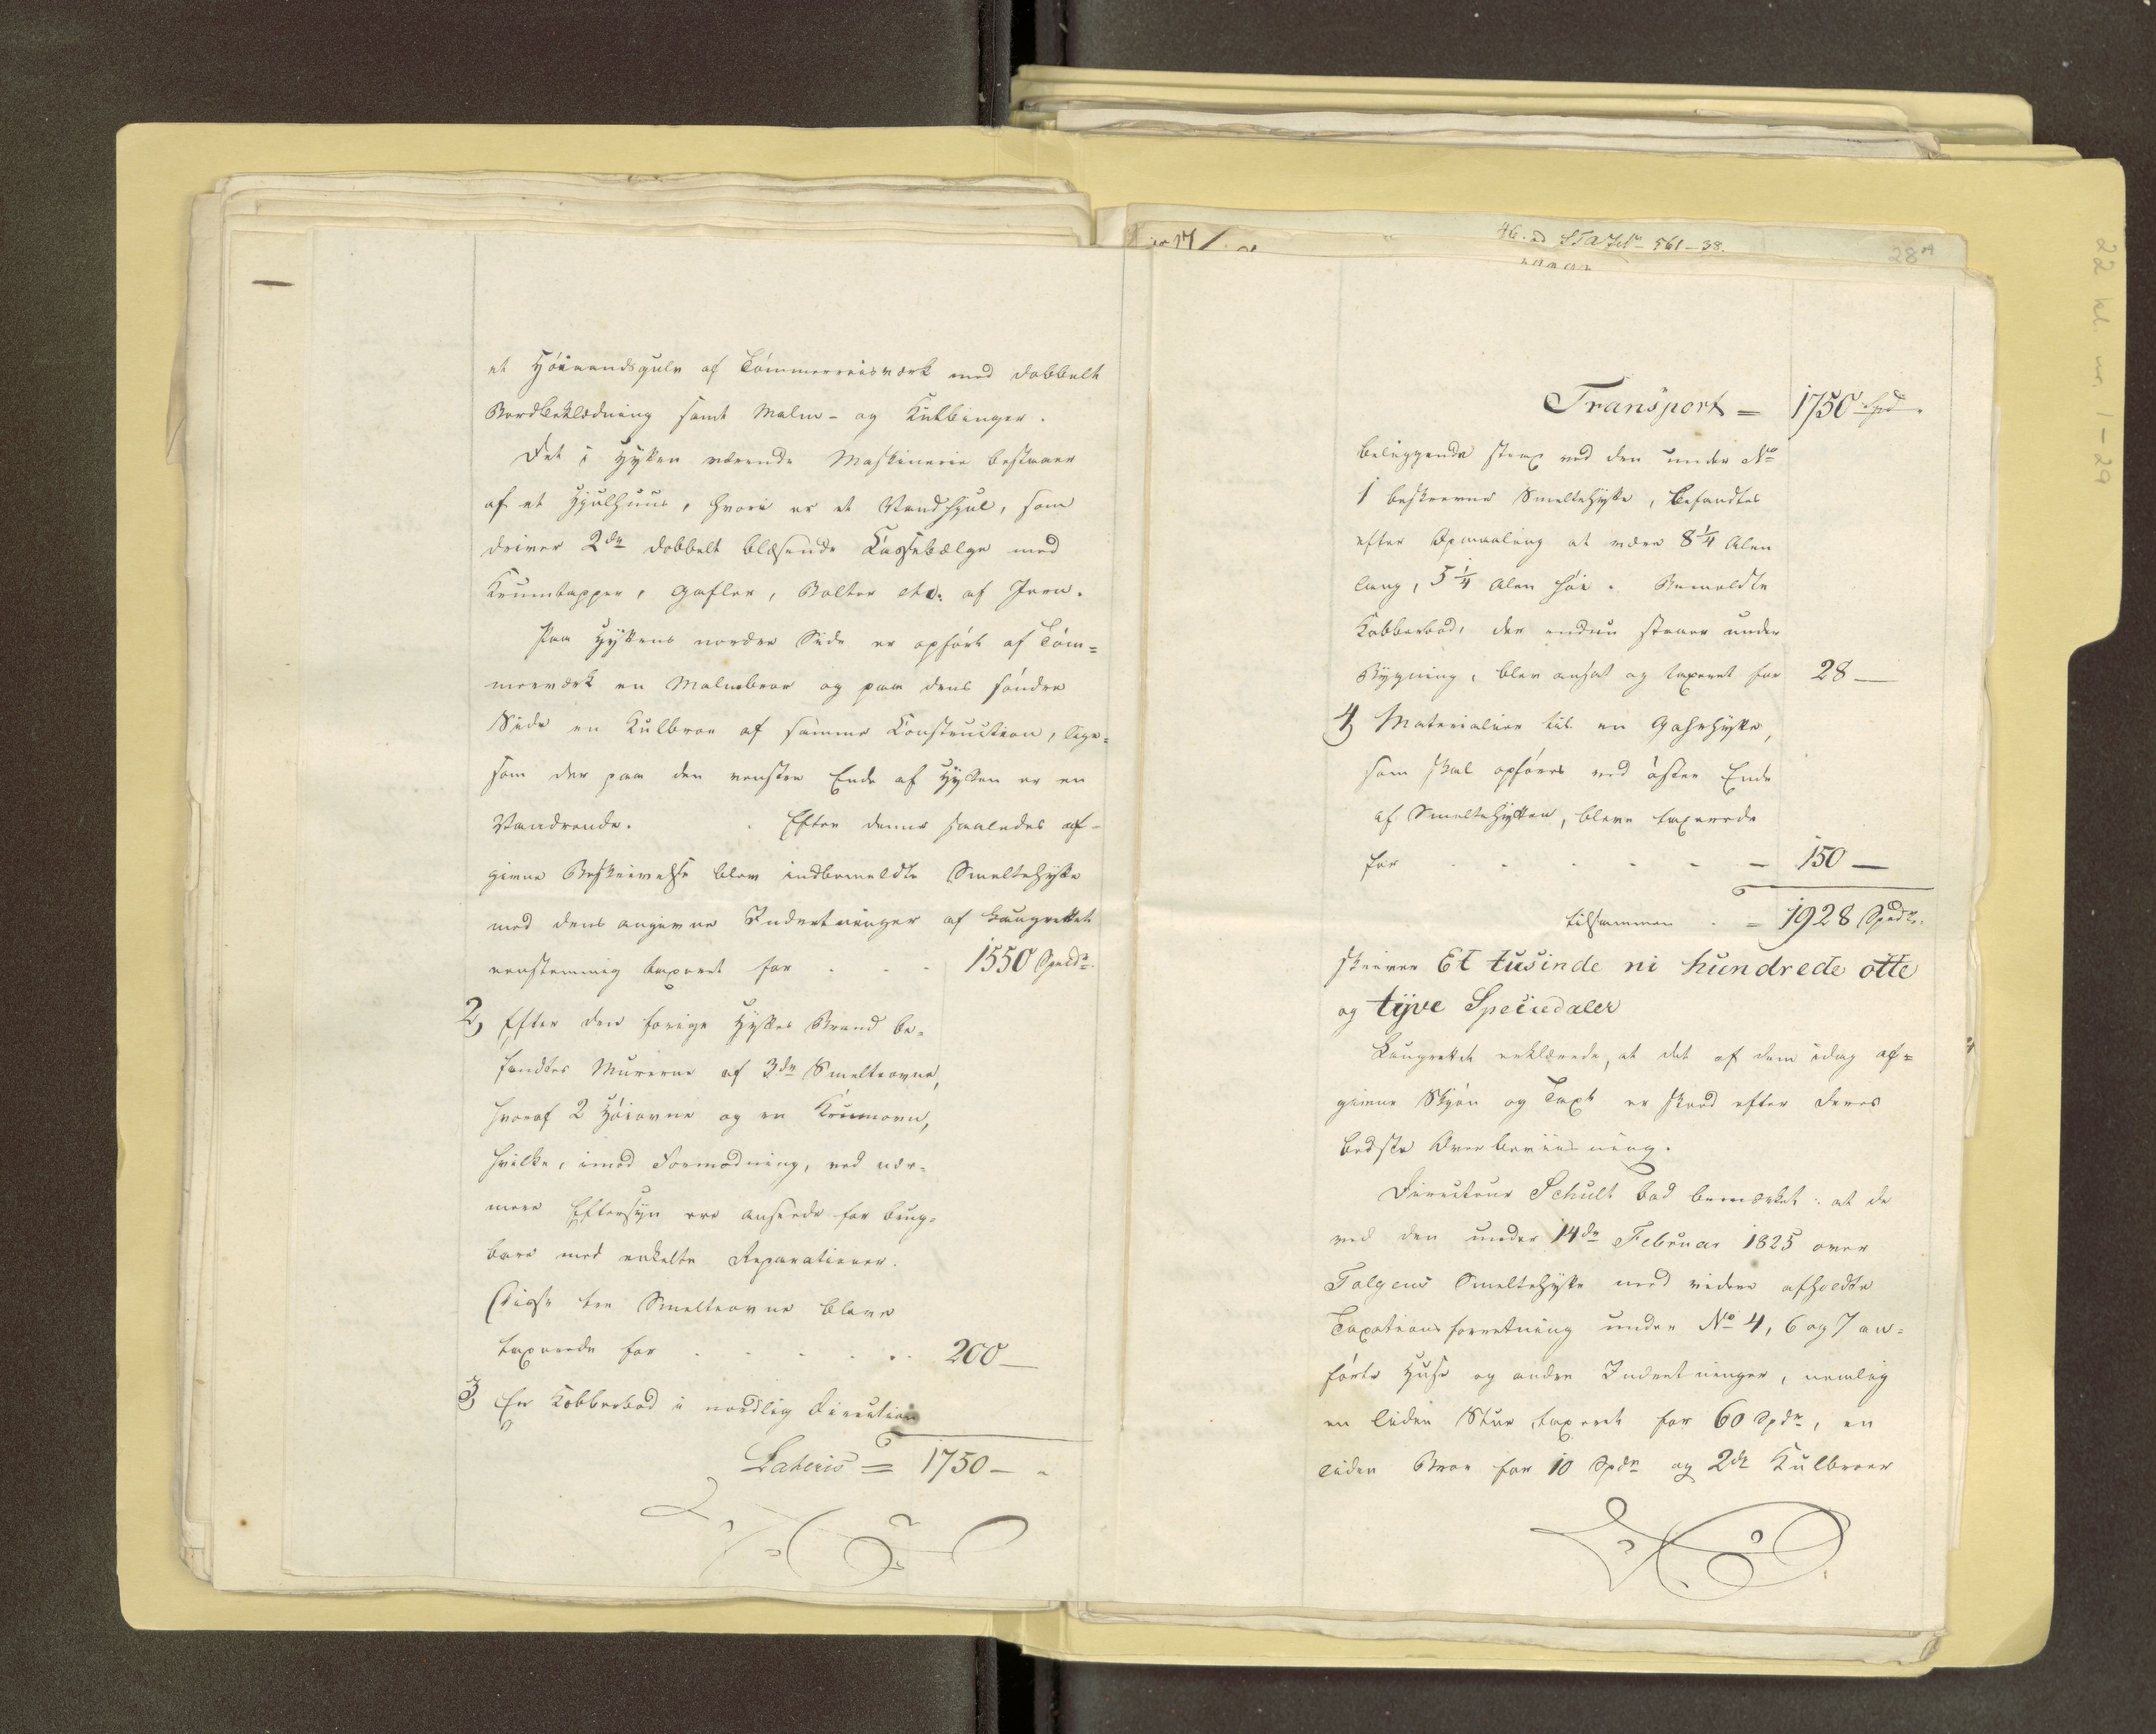 et Höiaandsgulv af Tömmerreisværk med dobbelt
Bordbeklædning samt Malm- og Kulbinger.
Det i Hytten værende Maskineri bestaaer
af et Hjulhuus, hvori er et Vandhjul, som
driver 2de dobbelt blæsende Kassebælge med
Krumtapper, Gafler, Bolter etc. af Jern.
Paa Hyttens nordre Side er opfört af Töm=
merværk en Malmbroe og paa dens söndre
Side en Kulbroe af samme Construction, lige=
som der paa den venstre Ende af Hytten er en
Vandrende. Efter denne saaledes af=
givne Beskrivelse blev indbemeldte Smeltehytte
med dens angivne Indretninger af Laugrettet
eenstemmig taxeret for . . . 1550 Specdr.
2) Efter den forrige Hyttes Brand be=
fandtes Murerne af 3de Smelteovne,
hvoraf 2 Höiovne og en Krumovn,
hvilke, imod Formodning, ved nær=
mere Eftersyn ere ansede for brug=
bare med enkelte Reparationer.
Disse tre Smelteovne bleve
taxerede for . . . . . . 200 —
3) En Kobberbod i nordlig Direction
Lateris = 1750 —
46. ad 561-38.
28 A
22 kl. nr. 1-29
Transport = 1750 Spd.
beliggende strax ved den under No
1 beskrevne Smeltehytte, befandtes
efter Opmaaling at være 8 1/4 Alen
lang, 5 1/4 Alen höi. Bemeldte
Kobberbod, der endnu staaer under
Bygning, blev ansat og taxeret for 28 —
4) Materialier til en Gahrhytte,
som skal opföres ved östre Ende
af Smeltehytten, bleve taxerede
for . . . . . . — 150 —
tilsammen . = 1928 Spdr.
skriver Et tusinde ni hundrede otte
og tyve Speciedaler
Laugrettet erklærede, at det af dem idag af=
givne Skjön og Taxt er skeed efter deres
bedste Overbeviisning.
Directeur Schult bad bemærket: at de
ved den under 14de Februar 1825 over
Folgens Smeltehytte med videre afholdte
Taxationsforretning under No 4, 6 og 7 an=
förte Huse og andre Indretninger, nemlig
en liden Stue taxeret for 60 Spdr, en
liden Broe for 10 Spdr og 2de Kulbroer